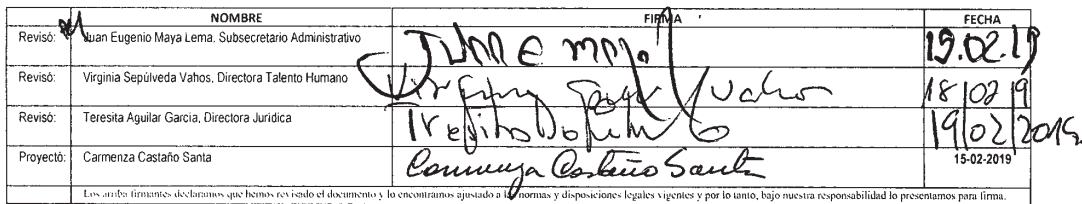 NOMBRE FIRMA FECHA
Revisó: Juan Eugenio Maya Lema. Subsecretario Administrativo 19.02.19
Revisó: Virginia Sepúlveda Vahos, Directora Talento Humano 18/02/19
Revisó: Teresita Aguilar García, Directora Jurídica 19/02/2019
Proyectó: Carmenza Castaño Santa Carmenza Castaño Santa 15-02-2019
Los arriba firmantes declaramos que hemos revisado el documento y lo encontramos ajustado a las normas y disposiciones legales vigentes y por lo tanto, bajo nuestra responsabilidad lo presentamos para firma.